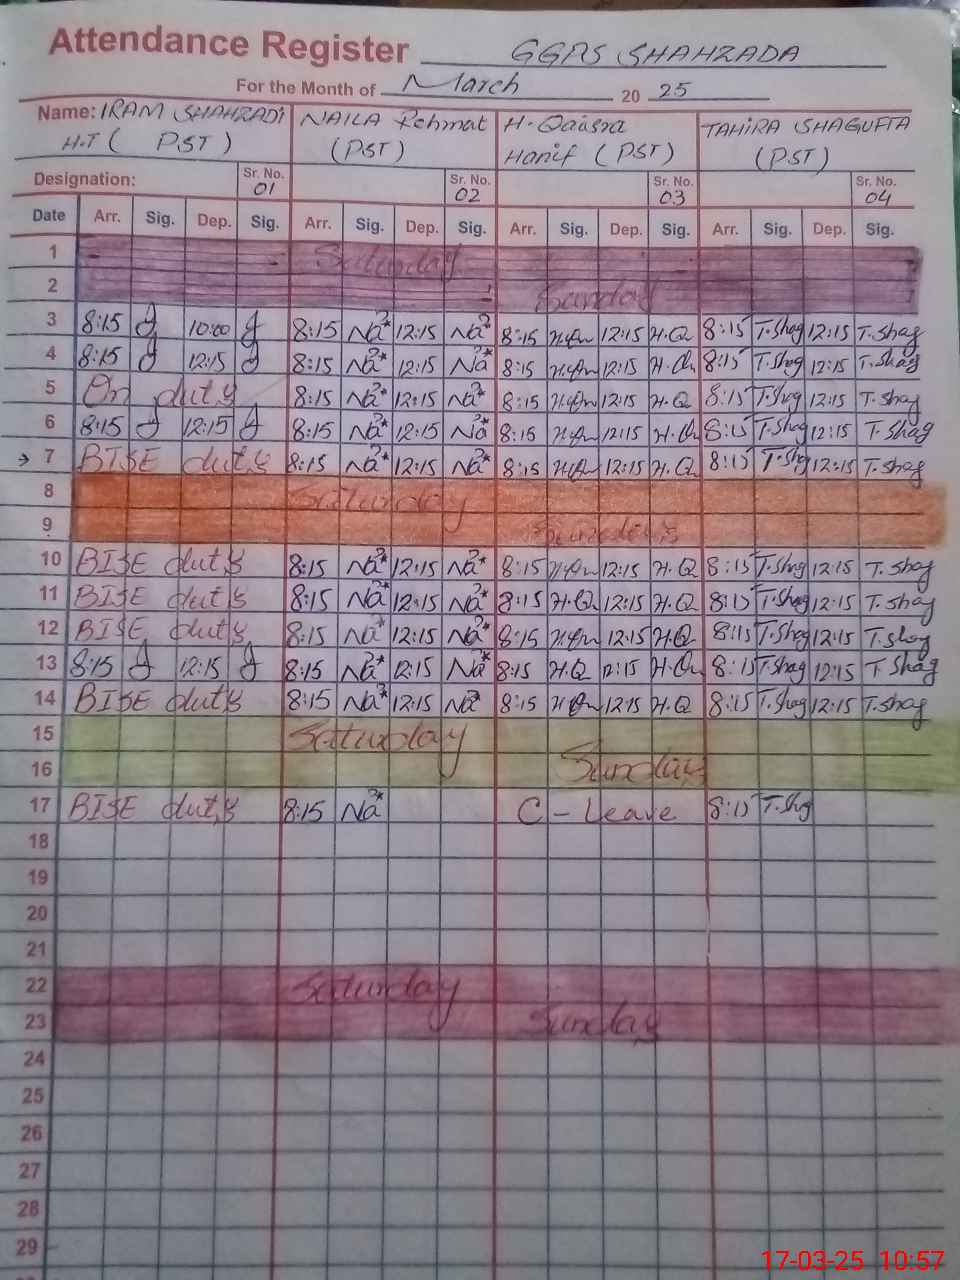 Attendance Register GGPS SHAHZADA
For the Month of March 20 25
Name: IRAM SHAHZADI NAILA Rehmat H-Qaisra TAHIRA SHAGUFTA
H.T ( PST ) (PST) Hanif (PST) (PST)
Designation: Sr. No. 01 Sr. No. 02 Sr. No. 03 Sr. No. 04
Date Arr. Sig. Dep. Sig. Arr. Sig. Dep. Sig. Arr. Sig. Dep. Sig. Arr. Sig. Dep. Sig.
1 Saturday
2 Sunday
3 8:15 10:00 8:15 Na 12:15 Na 8:15 12:15 H.Q 8:15 T.Shag 12:15 T.Shag
4 8:15 12:15 8:15 Na 12:15 Na 8:15 12:15 8:15 T.Shag 12:15 T.Shag
5 On duty 8:15 Na 12:15 Na 8:15 12:15 H.Q 8:15 T.Shag 12:15 T.Shag
6 8:15 12:15 8:15 Na 12:15 Na 8:15 12:15 8:15 T.Shag 12:15 T.Shag
7 BISE duty 8:15 Na 12:15 Na 8:15 12:15 H.Q 8:15 T.Shag 12:15 T.Shag
8 Saturday
9 Sunday
10 BISE duty 8:15 Na 12:15 Na 8:15 12:15 H.Q 8:15 T.Shag 12:15 T.Shag
11 BISE duty 8:15 Na 12:15 Na 8:15 H.Q 12:15 H.Q 8:15 T.Shag 12:15 T.Shag
12 BISE duty 8:15 Na 12:15 Na 8:15 12:15 H.Q 8:15 T.Shag 12:15 T.Shag
13 8:15 12:15 8:15 Na 12:15 Na 8:15 H.Q 12:15 8:15 T.Shag 12:15 T.Shag
14 BISE duty 8:15 Na 12:15 Na 8:15 12:15 H.Q 8:15 T.Shag 12:15 T.Shag
15 Saturday
16 Sunday
17 BISE duty 8:15 Na C-Leave 8:15 T.Shag
18
19
20
21
22 Saturday
23 Sunday
24
25
26
27
28
29
17-03-25 10:57